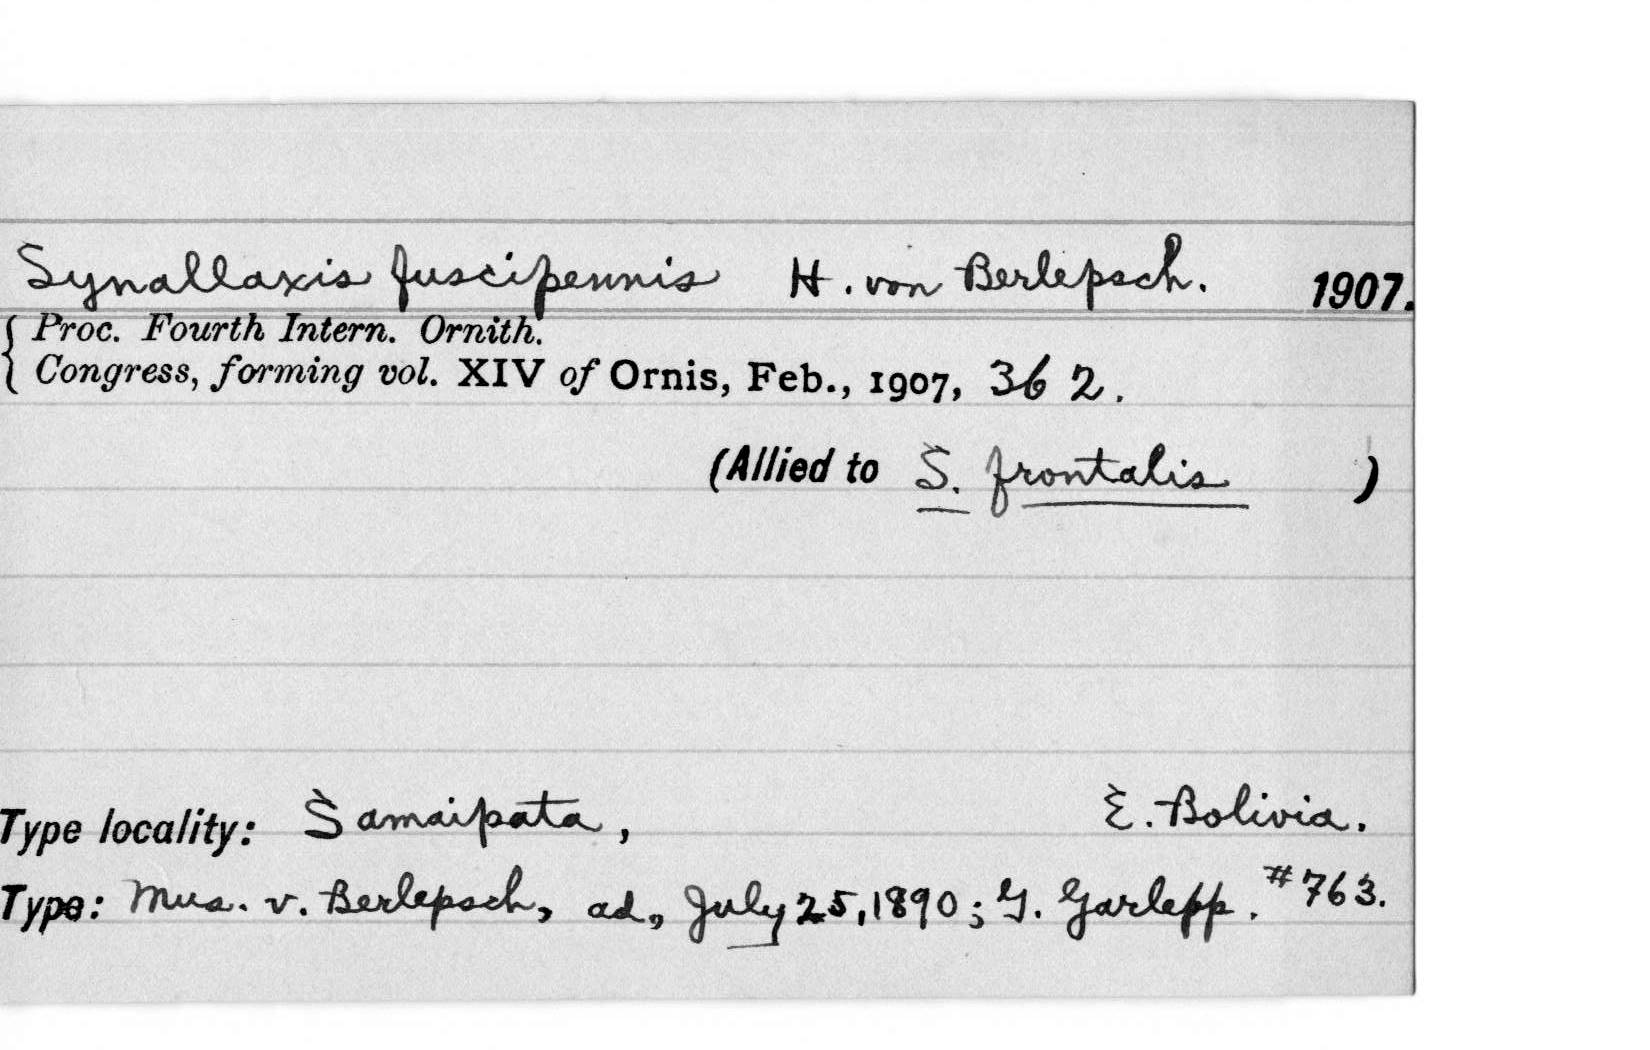 Synallaxis fuscipennis H. von Berlepsch. 1907.
Proc. Fourth Intern. Ornith.
Congress, forming vol. XIV of Ornis, Feb., 1907, 362.
(Allied to S. frontalis )
Type locality: Samaipata, E. Bolivia.
Type: Mus. v. Berlepsch, ad., July 25, 1890; G. Garlepp. #763.